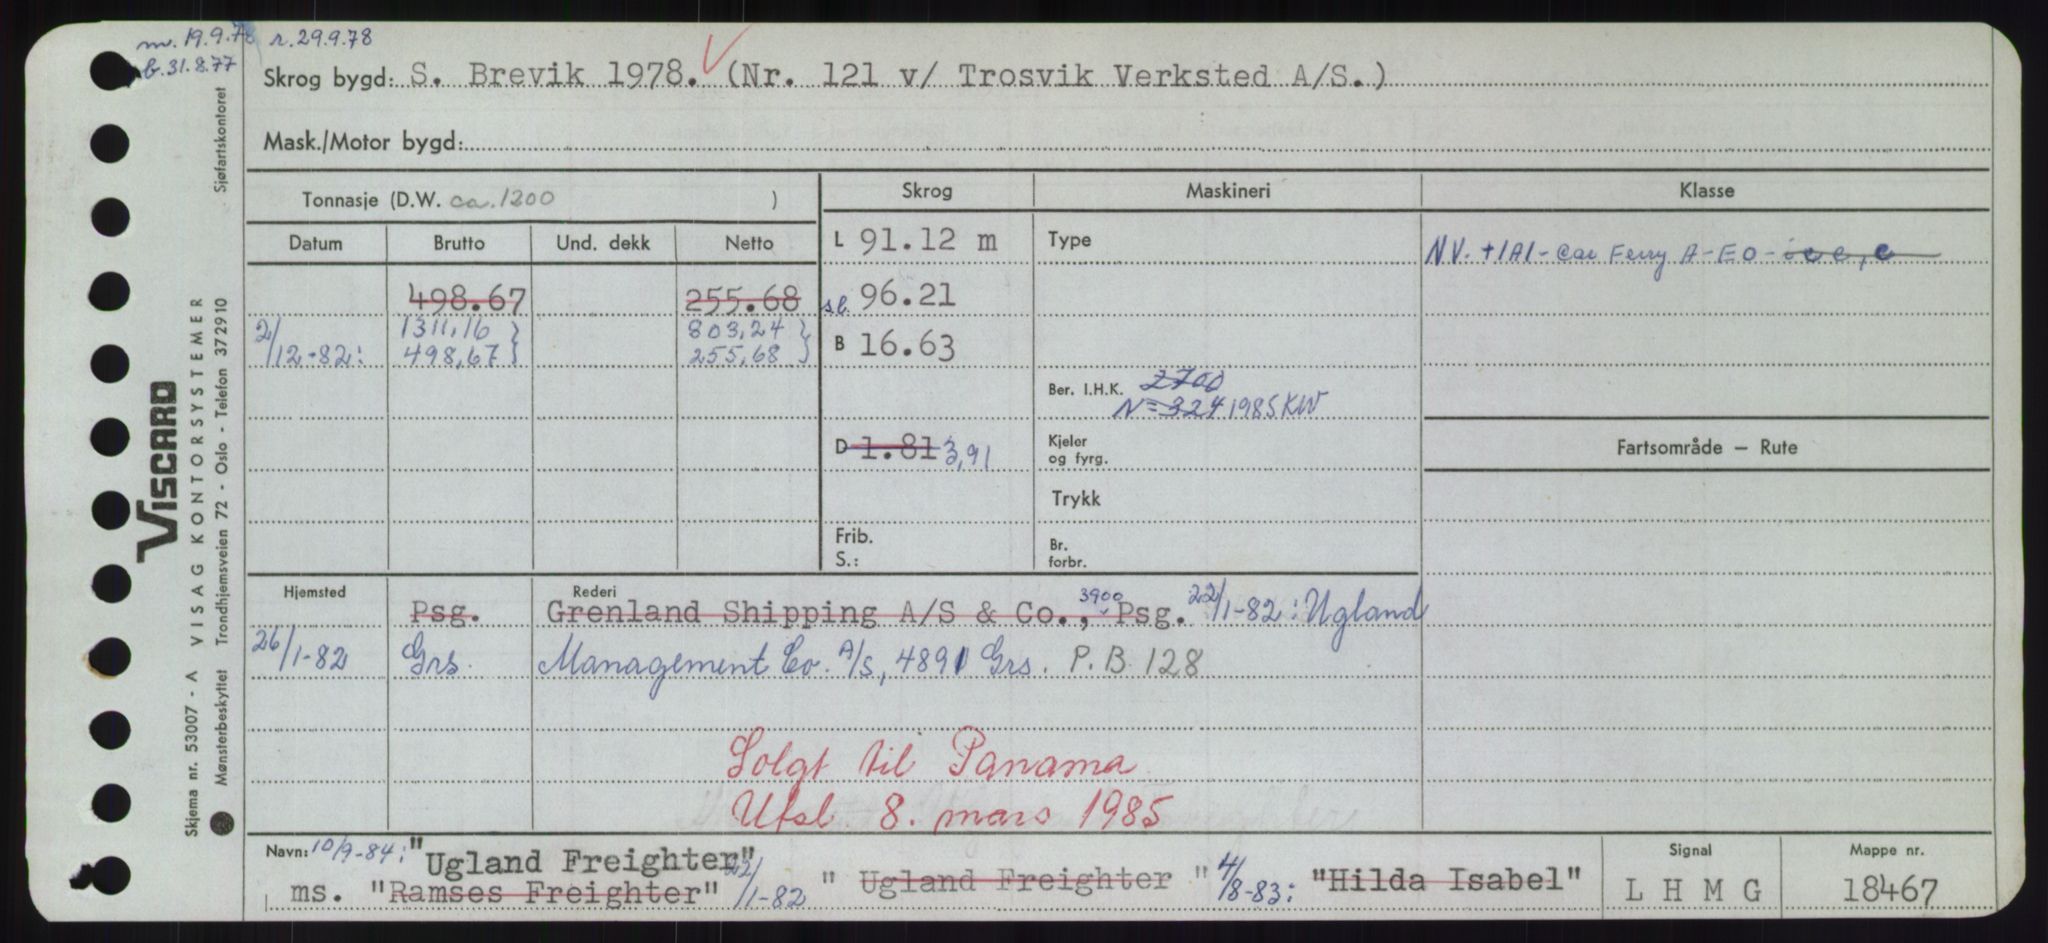 m. 19.9.78 r. 29.9.78
b. 31.8.77
Skrog bygd: S. Brevik 1978. (Nr. 121 v/ Trosvik Verksted A/S.)
Mask./Motor bygd:
Tonnasje (D.W. ca. 1200 )
Skrog Maskineri Klasse
Datum Brutto Und. dekk Netto
L 91.12 m Type
N.V. +1A1 - Car Ferry A - EO - ice, c
498.67 255.68 s.b. 96.21
1311,16 } 803,24 }
2/12-82: 498,67 } 255,68 }
B 16.63
Ber. I.H.K. 2700
N=324 1985 KW
D 1.81 3,91
Kjeler
og fyrg.
Fartsområde — Rute
Trykk
Frib.
S.:
Br.
forbr.
Hjemsted Rederi
Psg. Grenland Shipping A/S & Co., 3900 Psg. 22/1-82: Ugland
26/1-82 Grs. Management Co. A/S, 4891 Grs. P.B. 128
Solgt til Panama
Utsl. 8. mars 1985
Navn: 10/9-84: "Ugland Freighter"
ms. "Ramses Freighter" 22/1-82 " Ugland Freighter " 4/8-83: "Hilda Isabel"
Signal
L H M G
Mappe nr.
18467
VISCARD
Skjema nr. 53007 - A VISAG KONTORSYSTEMER
Mønsterbeskyttet Trondhjemsveien 72 - Oslo - Telefon 372910 Sjøfartskontoret